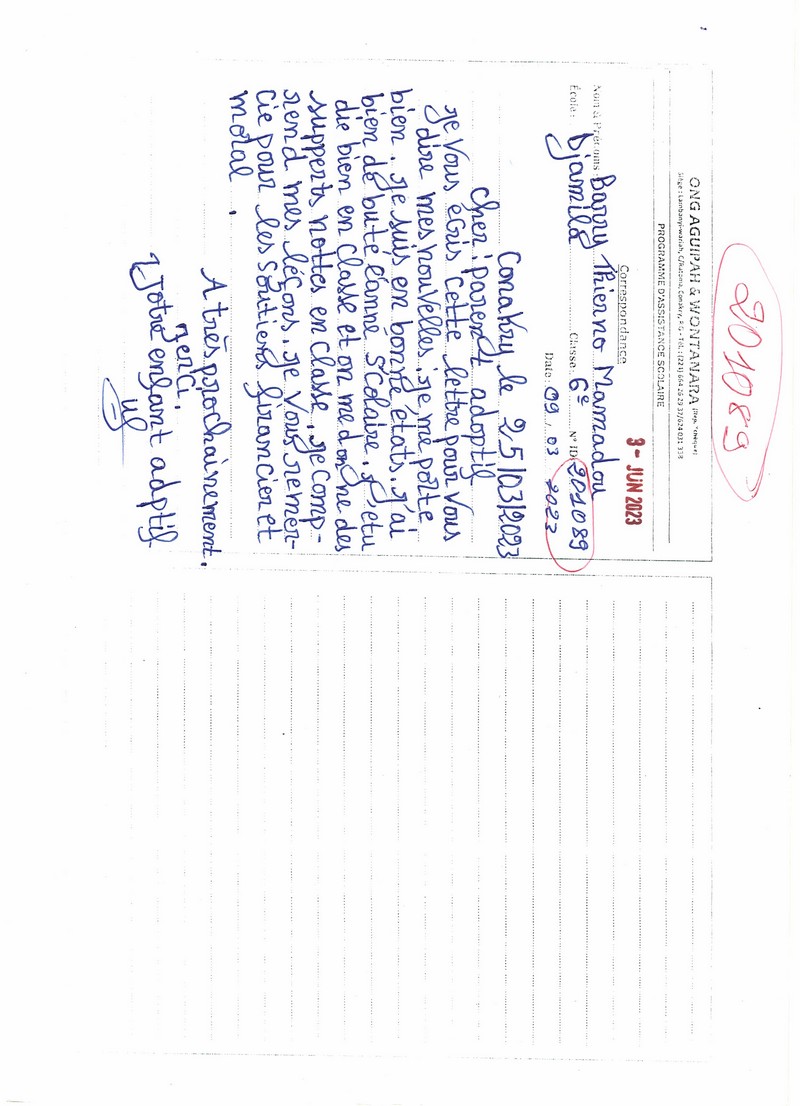 201089
ONG AGUIPAH & WONTANARA
PROGRAMME D'ASSISTANCE SCOLAIRE
Correspondance
3 - JUN 2023
Nom & Prénoms : Barry Thierno Mamadou
École : Djamila Classe : 6e N° ID 201089
Date : 09 / 03 2023
Conakry le 25/03/2023
Cher parent adoptif
je vous écris cette lettre pour vous
dire mes nouvelles. je me porte
bien. je suis en bonne états. j'ai
bien de buté l'anne scolaire. j'etu
die bien en classe et on me donne des
supperts nottes en classe. je comp-
rend mes léçons. je vous remer-
cie pour les soutiens financier et
moral.
A très prochainement.
Merci.
Votre enfant adptif